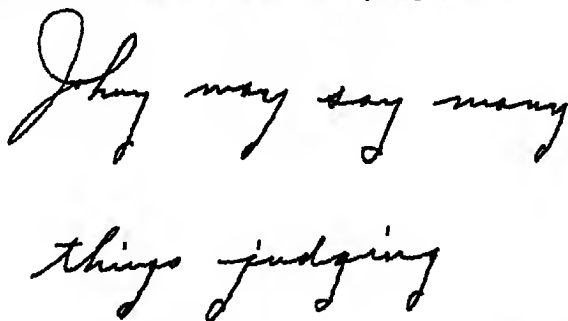 Johny may say many
things judging